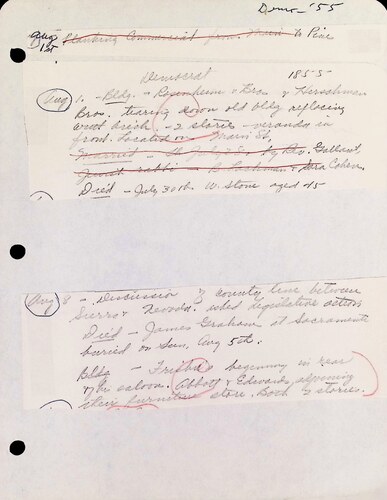 Demo - '55
Aug 1st Planking Commercial from Main to Pine
Democrat 1855
Aug 1. - Bldg - Rosenheim & Bro & Hirschman
Bro. tearing down old bldg replacing
with brick, - 2 stories - veranda in
front. Located on Main St.
Married - by Rev. Gallant,
Jewish rabbi - & Mrs Cohen
Died - July 30th W. Stone aged 45
Aug 8 - Discussion of county line between
Sierra & Nevada. was legislative action
Died - James Graham at Sacramento
buried on Sun, Aug 5th.
Bldg - beginning in rear
of his saloon. Abbott & Edwards adjoining
their furniture store. Both 2 stories.